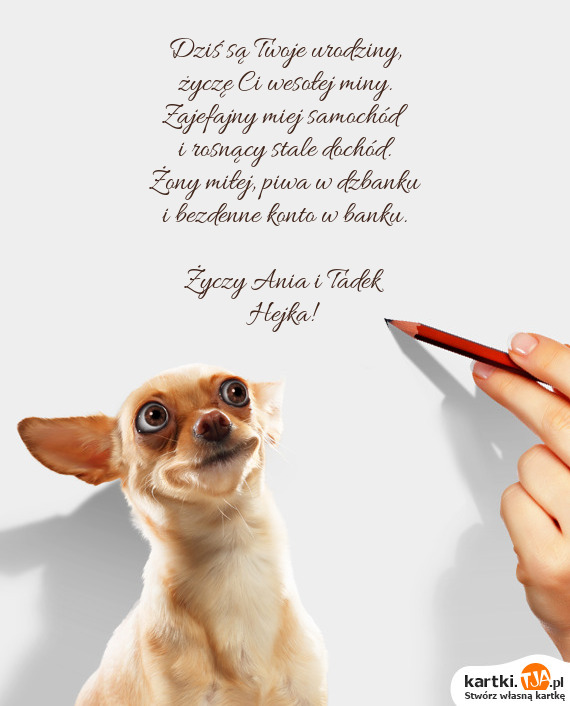 Dziś są Twoje urodziny,
życzę Ci wesołej miny.
Zajefajny miej samochód
i rosnący stale dochód.
Żony miłej, piwa w dzbanku
i bezdenne konto w banku.
Życzy Ania i Tadek
Hejka!
kartki.TJA.pl
Stwórz własną kartkę